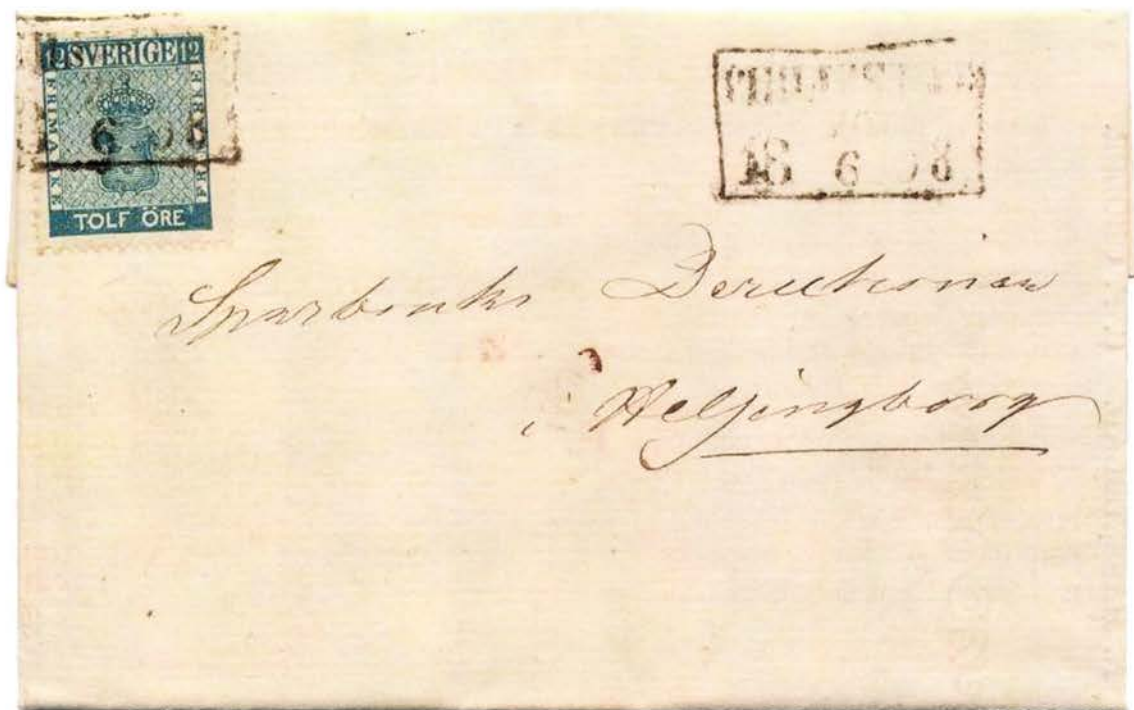 12 SVERIGE 12
FRIMÄRKE
TOLF ÖRE
6 58
18 6 58
Sparbanks Directionen
i Helsingborg